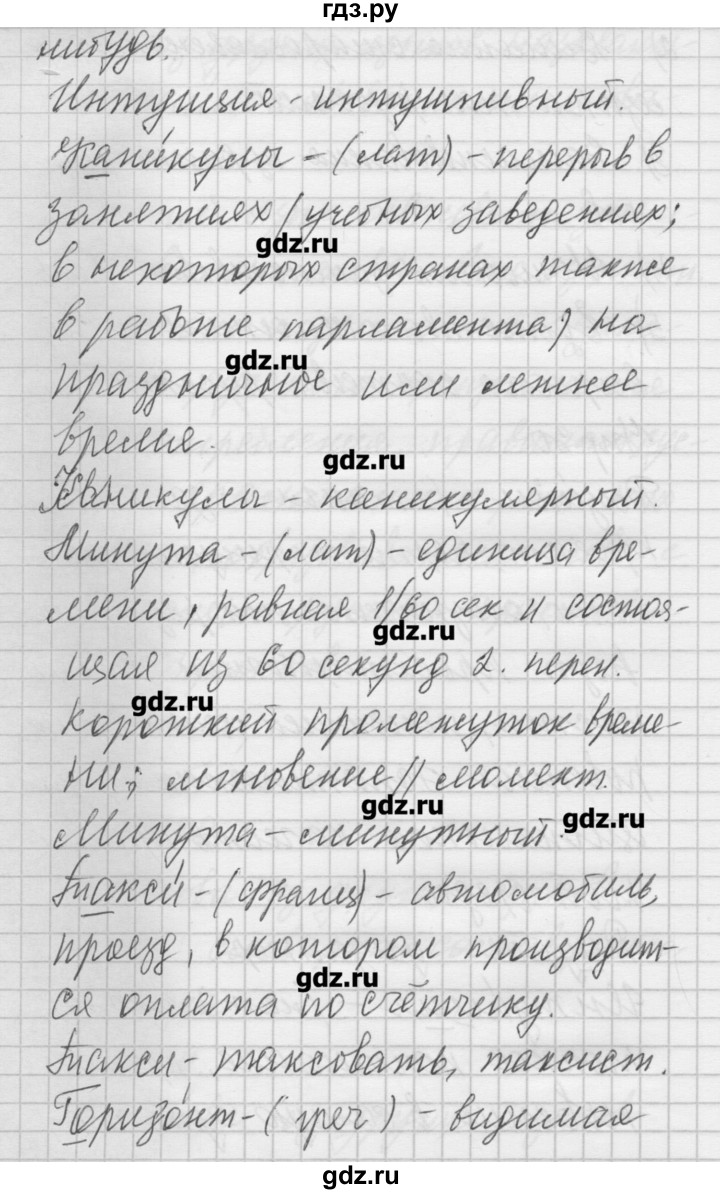 гдз.ру
нибудь.
Интуиция - интуитивный.
Кани́кулы - (лат) - перерыв в
занятиях /учебных заведениях;
gdz.ru
в некоторых странах также
в работе парламента) на
gdz.ru
праздничное или летнее
время.
gdz.ru
Каникулы - каникулярный.
Минута - (лат) - единица вре-
мени, равная 1/60 сек и состоя-
gdz.ru
щая из 60 секунд 2. перен.
gdz.ru
короткий промежуток време-
ни; мгновение // момент.
gdz.ru
Минута - минутный.
gdz.ru
Такси́ - (франц) - автомобиль,
проезд, в котором производит-
gdz.ru
ся оплата по счётчику.
Такси - таксовать, таксист.
Горизо́нт - (греч) - видимая
gdz.ru